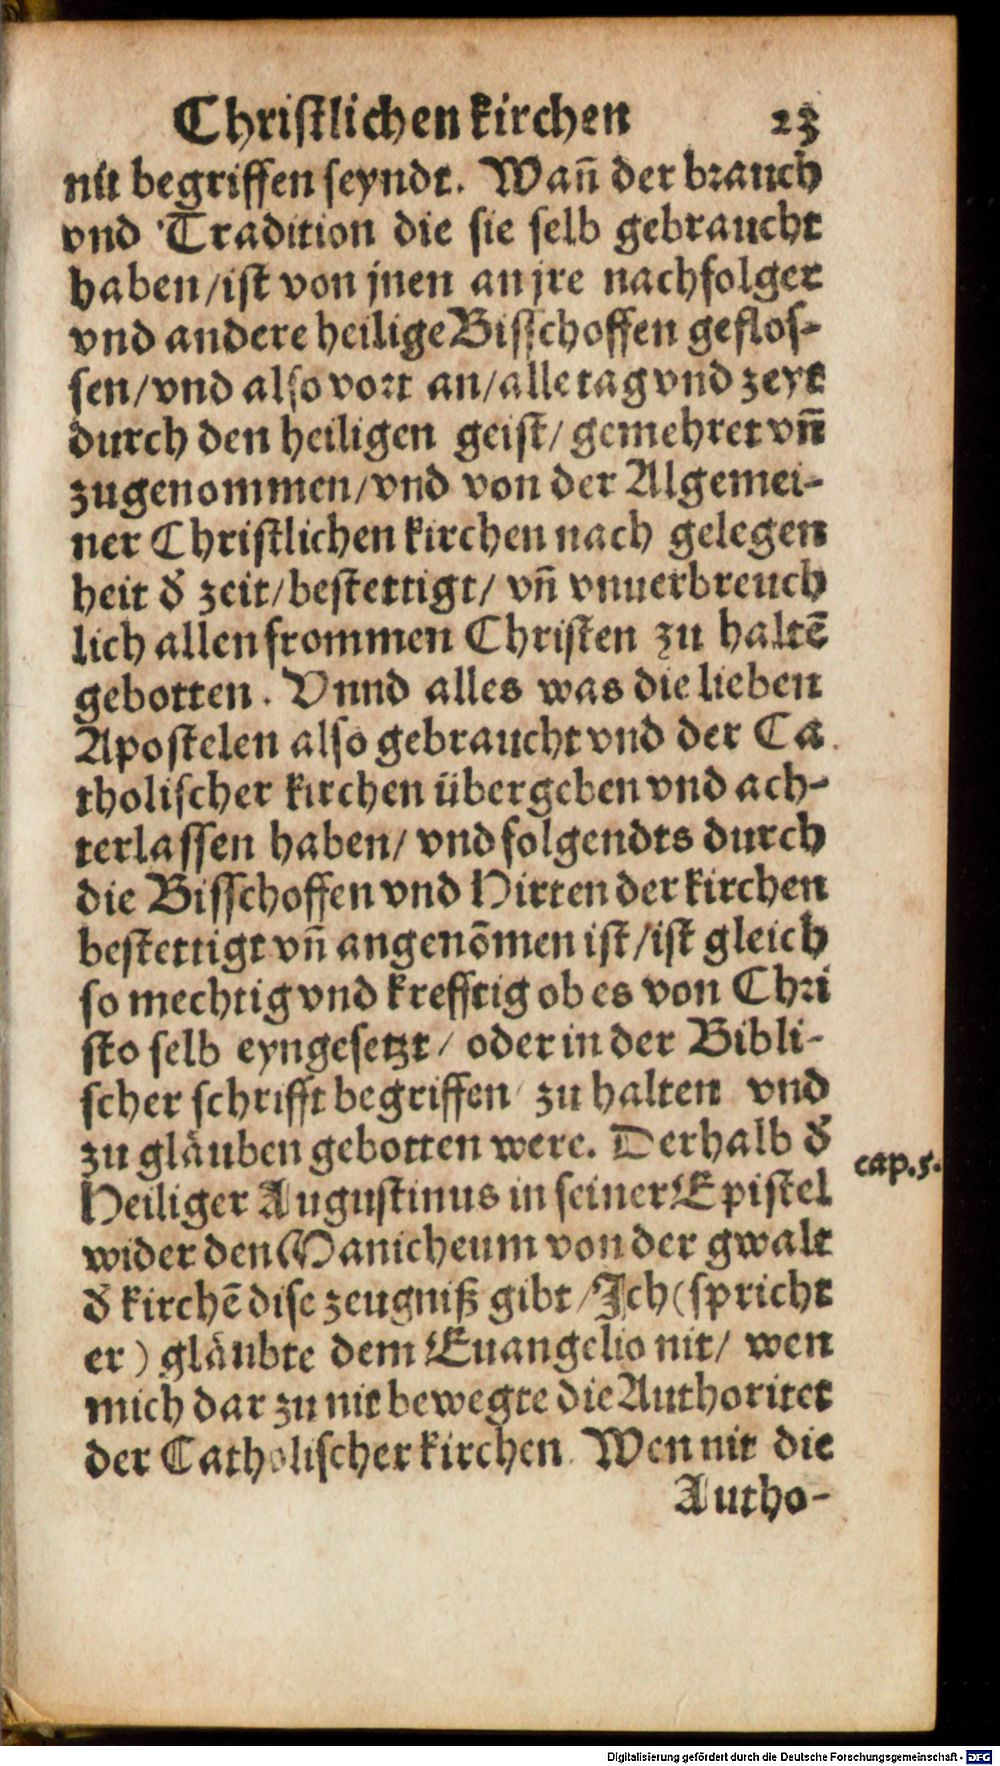 Christlichen kirchen 23
nit begriffen seyndt. Wañ der brauch
vnd Tradition die sie selb gebraucht
haben/ist von jnen an jre nachfolger
vnd andere heilige Bisschoffen geflos-
sen/vnd also vort an/alle tag vnd zeyt
durch den heiligen geist/ gemehret vñ
zugenommen/vnd von der Algemei-
ner Christlichen kirchen nach gelegen
heit d̕ zeit/bestettigt/ vñ vnuerbreuch
lich allen frommen Christen zu haltē
gebotten. Vnnd alles was die lieben
Apostelen also gebraucht vnd der Ca
tholischer kirchen übergeben vnd ach-
terlassen haben/ vnd folgendts durch
die Bisschoffen vnd Hirten der kirchen
bestettigt vñ angenōmen ist/ist gleich
so mechtig vnd krefftig ob es von Chri
sto selb eyngesetzt/ oder in der Bibli-
scher schrifft begriffen/ zu halten vnd
zu gläuben gebotten were. Derhalb d̕
Heiliger Augustinus in seiner Epistel
cap.5.
wider den Manicheum von der gwalt
d̕ kirchē dise zeugniß gibt/Ich (spricht
er) gläubte dem Euangelio nit/ wen
mich dar zu nit bewegte die Authoritet
der Catholischer kirchen. Wen nit die
Autho-
Digitalisierung gefördert durch die Deutsche Forschungsgemeinschaft - DFG